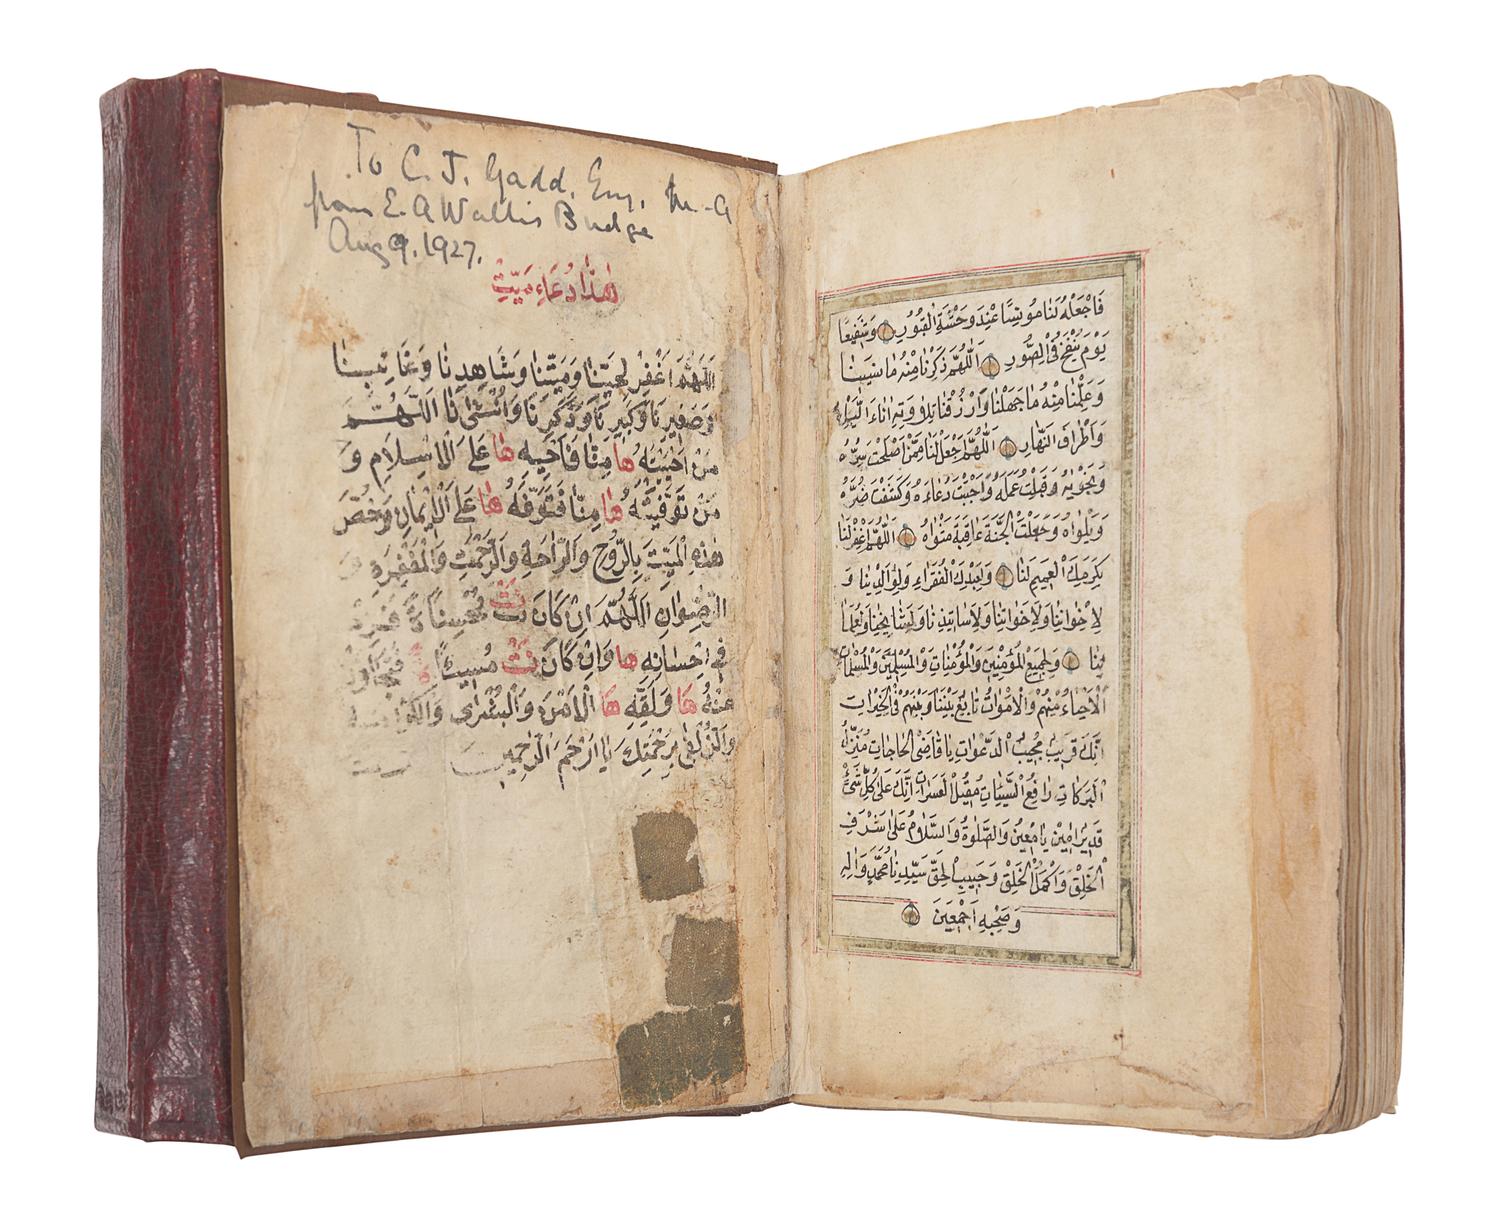 To C. J. Gadd. Esq. M.A
from E. A Wallis Budge
Aug 9. 1927.
هٰذا دُعَاءِ مَيِّتِ
اَللّٰهُمَّ اغْفِرْ لِحَيِّنَا وَمَيِّتِنَا وَشَاهِدِنَا وَغَائِبِنَا
وَصَغِيرِنَا وَكَبِيرِنَا وَذَكَرِنَا وَاُنْثَىٰنَا اَللّٰهُمَّ
مَنْ اَحْيَيْتَهُ هَا مِنَّا فَاَحْيِهِ هَا عَلَى الْاِسْلَامِ وَ
مَنْ تَوَفَّيْتَهُ هَا مِنَّا فَتَوَفَّهُ هَا عَلَى الْاِيمَانِ وَخُصَّ
هٰذِهِ الْمَيِّتَ بِالرَّوْحِ وَالرَّاحَةِ وَالرَّحْمَتِ وَالْمَغْفِرَةِ وَ
الرِّضْوَانِ اَللّٰهُمَّ اِنْ كَانَ نَتْ مُحْسِنًا ةً فَزِدْ
فِي اِحْسَانِهِ هَا وَاِنْ كَانَ نَتْ مُسِيئًا ةً فَتَجَاوَزْ
عَنْهُ هَا وَلَقِّهِ هَا الْاَمْنَ وَالْبُشْرَى وَالْكَرَامَةَ
وَالزُّلْفَى بِرَحْمَتِكَ يَا اَرْحَمَ الرَّاحِمِينَ
فَاجْعَلْهُ لَنَا مُونِسًا عِنْدَ وَحْشَةِ الْقُبُورِ وَشَفِيعًا
يَوْمَ يُنْفَخُ فِي الصُّورِ اَللّٰهُمَّ ذَكِّرْنَا مِنْهُ مَا نَسِينَا
وَعَلِّمْنَا مِنْهُ مَا جَهِلْنَا وَارْزُقْنَا تِلَاوَتِهِ اٰنَاءَ الَّيْلِ
وَاَطْرَافَ النَّهَارِ اَللّٰهُمَّ جْعَلْنَا مِمَّنْ اَصْلَحْتَ سِرَّهُ
وَنَجْوَيهُ وَقَبِلْتَ عَمَلَهُ وَاَجَبْتَ دُعَاءَهُ وَكَشَفْتَ ضُرَّهُ
وَبَلْوَاهُ وَجَعَلْتَ الْجَنَّةَ عَاقِبَةَ مَثْوَاهُ اَللّٰهُمَّ اغْفِرْ لَنَا
بِكَرَمِكَ الْعَمِيمِ لَنَا وَلِعَبِيدِكَ الْفُقَرَاءِ وَلِوَالِدِينَا وَ
لِاِخْوَانِنَا وَلِاَخَوَاتِنَا وَلِاَسَاتِيذِنَا وَلِمَشَايِخِنَا وَلِمُعَلِّمَا
مِنَا وَلِجَمِيعِ الْمُؤْمِنِينَ وَالْمُؤْمِنَاتِ وَالْمُسْلِمِينَ وَالْمُسْلِمَاتِ
اَلْاَحْيَاءِ مِنْهُمْ وَالْاَمْوَاتِ تَابِعْ بَيْنَنَا وَبَيْنَهُمْ فِي الْخَيْرَاتِ
اِنَّكَ قَرِيبٌ مُجِيبُ الدَّعَوَاتِ يَا قَاضِيَ الْحَاجَاتِ مُنَزِّلَ
الْبَرَكَاتِ دَافِعُ السَّيِّئَاتِ مُقِيلُ الْعَثَرَاتِ اِنَّكَ عَلَى كُلِّ شَيْءٍ
قَدِيرٌ اٰمِينَ يَا مُعِينُ وَالصَّلٰوةُ وَالسَّلَامُ عَلَى اَشْرَفِ
الْخَلْقِ وَاَكْمَلِ الْخَلْقِ وَحَبِيبِ الْحَقِّ سَيِّدِنَا مُحَمَّدٍ وَاٰلِهِ
وَصَحْبِهِ اَجْمَعِينَ